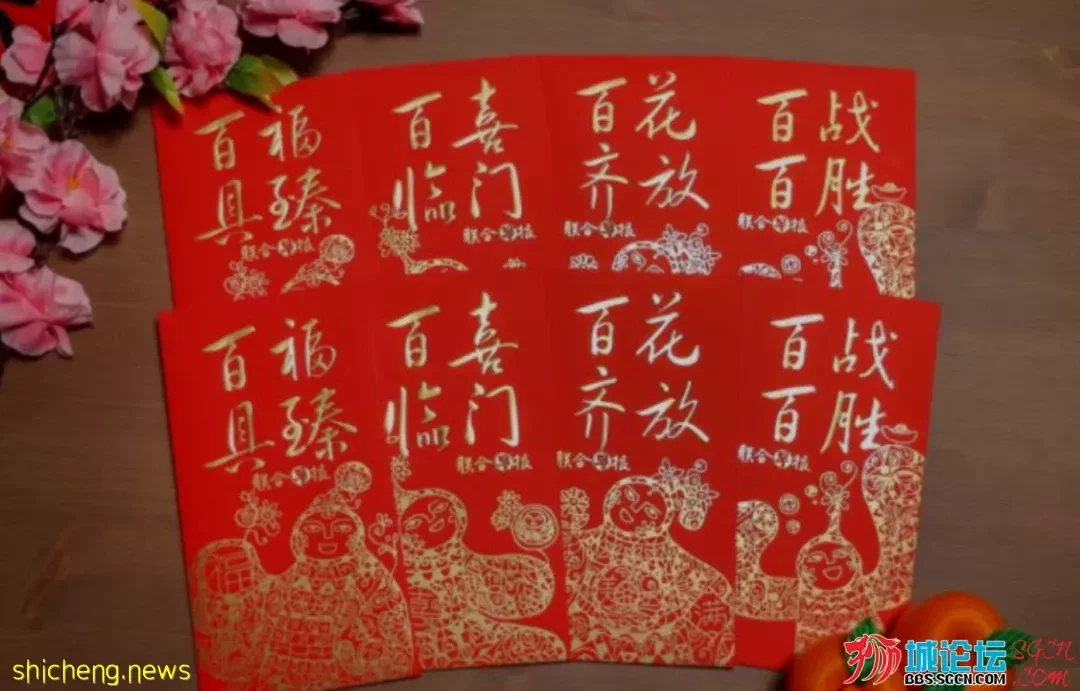 百福
具臻
联合早报
百喜
临门
联合早报
百花
齐放
联合早报
百战
百胜
联合早报
百福
具臻
联合早报
福
百喜
临门
联合早报
百花
齐放
联合早报
百战
百胜
联合早报
shicheng.news
狮城论坛
BBS.SGCN.COM
SGCN
.COM